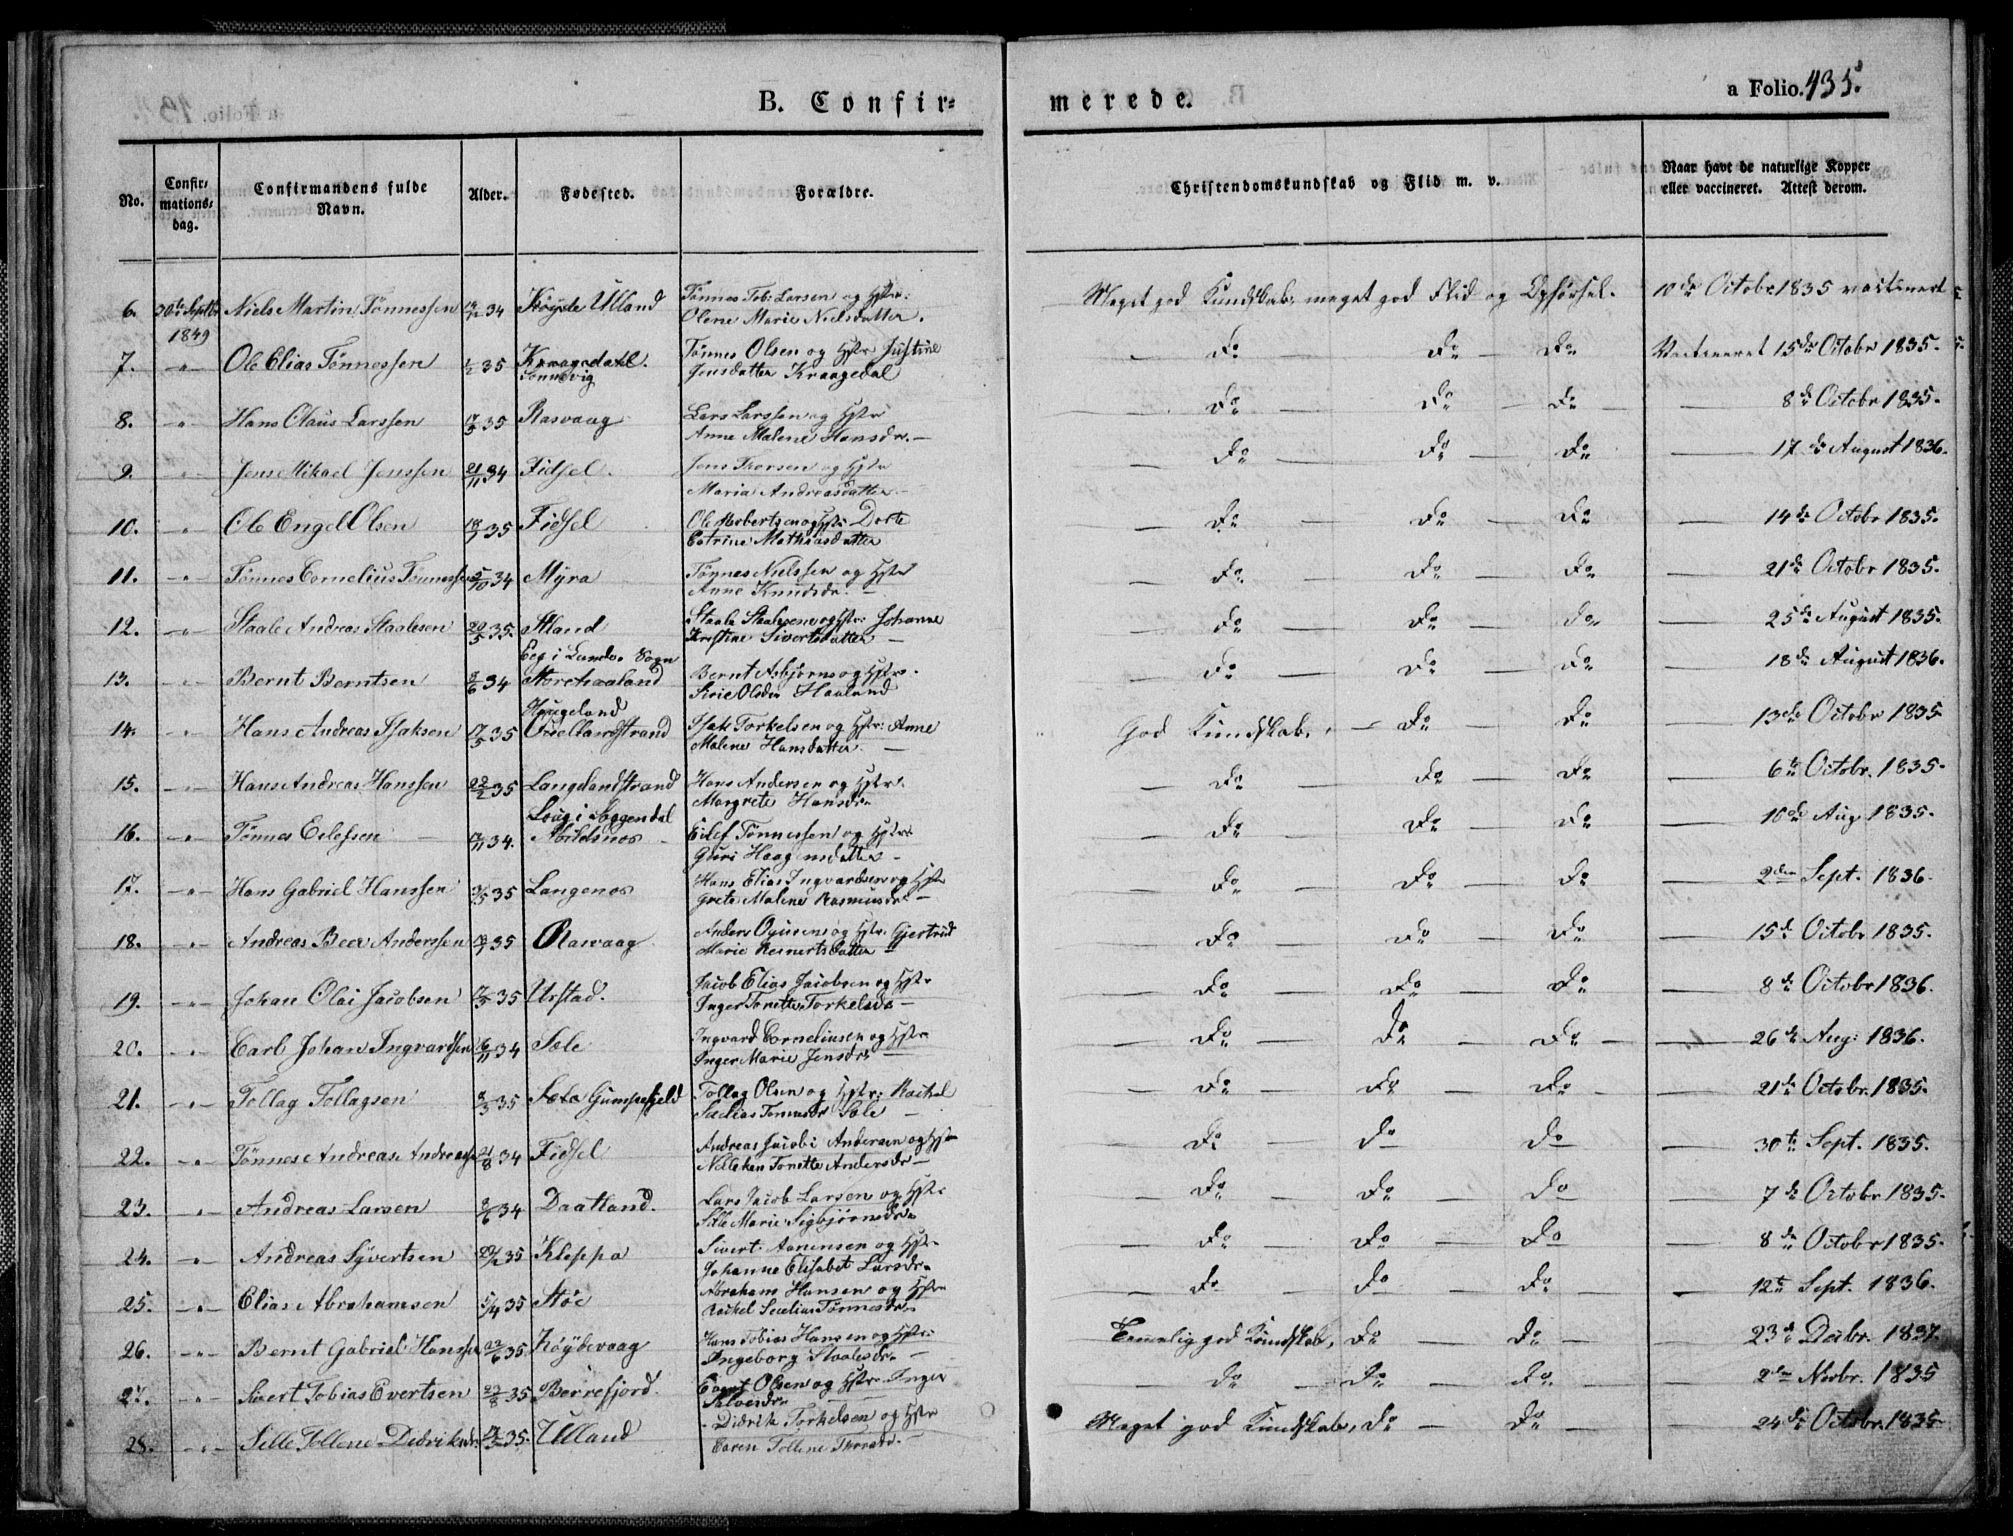 B. Confir=
merede.
a Folio. 435.
No.
Confir=
mations=
dag.
Confirmandens fulde
Navn.
Alder.
Fødested.
Forældre.
Christendomskundskab og Flid m. v.
Naar havt de naturlige Kopper
eller vaccineret. Attest derom.
6. 30te Septbr 1849 Niels Martin Tønnessen 34 Ulland Tønnes Tob: Larsen og Hstr: Olene Marie Nielsdatter. Meget god Kundskab, meget god Flid og Opførsel. 10de Octobr 1835 vaksineret
7. " Ole Elias Tønnessen 35 Kraagedahl. Tønnes Olsen og Hstr Justine Jensdatter Kraagedal Do Do Do Vaksineret 15de Octobr 1835.
8. " Hans Claus Larssen 35 Rasvaag Lars Larssen og Hstr Anne Malene Hansdr. Do Do Do 8de Octobr 1835.
9. " Jens Mikael Jenssen 21/11 34 Fidsel. Jens Thorsen og Hstr Maria Andreasdatter Do Do Do 17de August 1836.
10. " Ole Engel Olsen 35 Fidsel Ole og Hstr: Dorte Catrine Mathiasdatter Do Do Do 14de Octobr 1835.
11. " Tønnes Cornelius Tønnessen 5/10 34 Myra Tønnes Nielssen og Hstr Anne Knudsdr. Do Do Do 21de Octobr 1835.
12. " Staale Andreas Staalesen 20/5 35. Aland Staale Staalesen og Hstr: Johanne Sivertsdatter Do Do Do 25de August 1835.
13. " Bernt Berntsen 34 Eeg i Lunde Sogn Bernt Asbjørns og Hstr. Siri Olsdr Haaland Do Do Do 18de August 1836.
14. " Hans Andreas Isaksen 17/5 35 Hougeland Isak Torkelsen og Hstr: Anne Malene Hansdatter God Kundskab, Do Do 13de Octobr 1835
15. " Hans Andreas Hanssen 22/2 35 Langelandstrand Hans Andersen og Hstr. Margrete Hansdr. Do Do Do 6te Octobr. 1835.
16. " Tønnes Eilefsen 34. i Soggendal Abildsnos Eilef Tønnessen og Hstr Guri Do Do Do 10de Aug 1835.
17. " Hans Gabriel Hanssen 35 Langenos Hans Elias Ingvardsen og Hstr Grete Malene Rasmusdr Do Do Do 2den Sept. 1836.
18. " Andreas Beer Anderssen 35 Rasvaag Anders og Hstr. Gjertrud Marie Reinertsdatter Do Do Do 15de Octobr 1835.
19. " Johan Olai Jacobsen 35 Urstad. Jacob Elias Jacobsen og Hstr Inger Tonette Torkelsdr Do Do Do 8de Octobr 1836.
20. " Carl Johan Ingvardsen 34 Sole Ingvard Corneliusen og Hstr Inger Marie Jensdr Do Do Do 26de Aug: 1836.
21. " Tollag Tollagsen 35 Gumpefjeld Tollag Olsen og Hstr: Rachel Sole Do Do Do 21de Octobr. 1835.
22. " Tønnes Andreas 34 Fidsel Andreas Jacobi Andersen og Hstr Tonette Andersdr Do Do Do 30te Sept. 1835.
23. " Andreas Larsen 34 Daatland. Lars Jacob Larsen og Hstr. Sille Marie Sigbjørnsdr Do Do Do 7de Octobr 1835.
24. " Andreas Syvertsen 35 Kleppa Sivert Aanensen og Hstr. Johanne Elisabet Larsdr. Do Do Do 8de Octobr 1835.
25. " Elias Abrahamsen 5/4 35 Støe Abraham Hansen og Hstr Rachel Tønnesdr. Do Do Do 12te Sept. 1836.
26. " Bernt Gabriel Hanssen 22/6 35 Høydevaag Hans Tobias Hansen og Hstr: Ingeborg Staalesdr. Temmelig god Kundskab, Do Do 23de Decbr. 1837.
27. " Sivert Tobias Evertsen 35. Berrefjord. Evert Olsen og Hstr. Inger Do Do Do 2den Novbr. 1835
28. " Sille Tollene Didriksdr. 35. Ulland Didrik Torkelsen og Hstr Caren Tollene Meget god Kundskab, Do Do 24de Octobr. 1835.